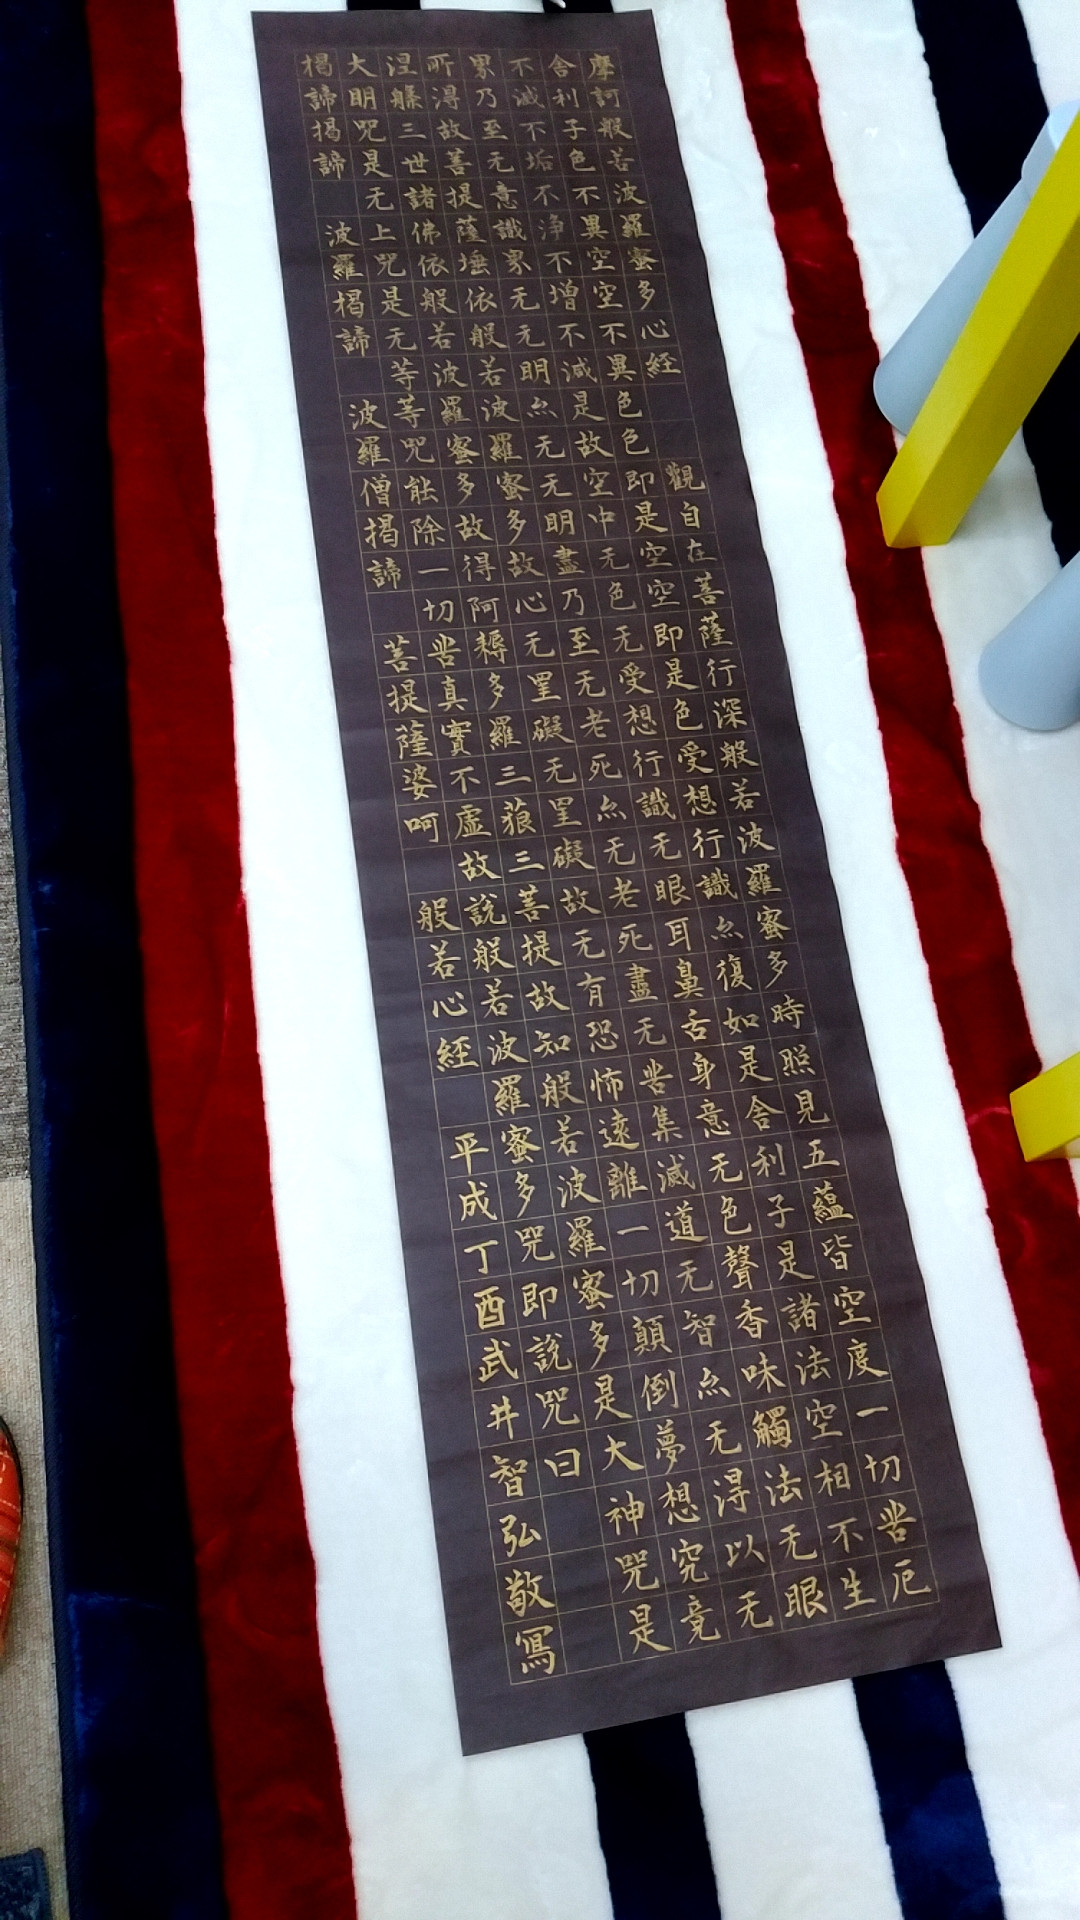 摩訶般若波羅蜜多心經 觀自在菩薩行深般若波羅蜜多時照見五蘊皆空度一切苦厄
舍利子色不異空空不異色色即是空空即是色受想行識亦復如是舍利子是諸法空相不生
不滅不垢不淨不增不減是故空中无色无受想行識无眼耳鼻舌身意无色聲香味觸法无眼
界乃至无意識界无无明亦无无明盡乃至无老死亦无老死盡无苦集滅道无智亦无得以无
所得故菩提薩埵依般若波羅蜜多故心无罣礙无罣礙故无有恐怖遠離一切顛倒夢想究竟
涅槃三世諸佛依般若波羅蜜多故得阿耨多羅三藐三菩提故知般若波羅蜜多是大神咒是
大明咒是无上咒是无等等咒能除一切苦真實不虛故說般若波羅蜜多咒即說咒曰
揭諦揭諦 波羅揭諦 波羅僧揭諦 菩提薩婆呵 般若心經 平成丁酉武井智弘敬寫